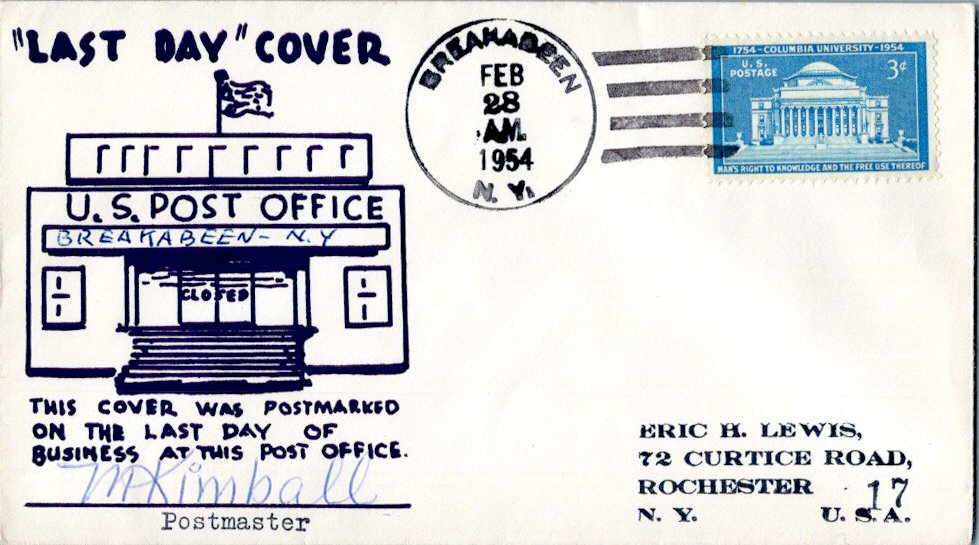 "LAST DAY" COVER
U.S. POST OFFICE
BREAKABEEN - N.Y
CLOSED
THIS COVER WAS POSTMARKED
ON THE LAST DAY OF
BUSINESS AT THIS POST OFFICE.
M Kimball
Postmaster
BREAKABEEN
FEB
28
AM.
1954
N. Y.
1754 - COLUMBIA UNIVERSITY - 1954
U.S.
POSTAGE
3¢
MAN'S RIGHT TO KNOWLEDGE AND THE FREE USE THEREOF
ERIC H. LEWIS,
72 CURTICE ROAD,
ROCHESTER 17
N. Y. U. S. A.